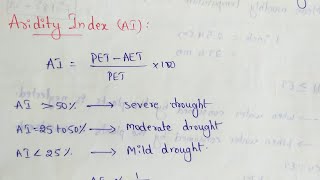 Aridity Index (AI):
AI = PET-AET / PET ×100
AI ≥ 50% → severe drought
AI = 25 to 50% → moderate drought
AI < 25% → Mild drought.